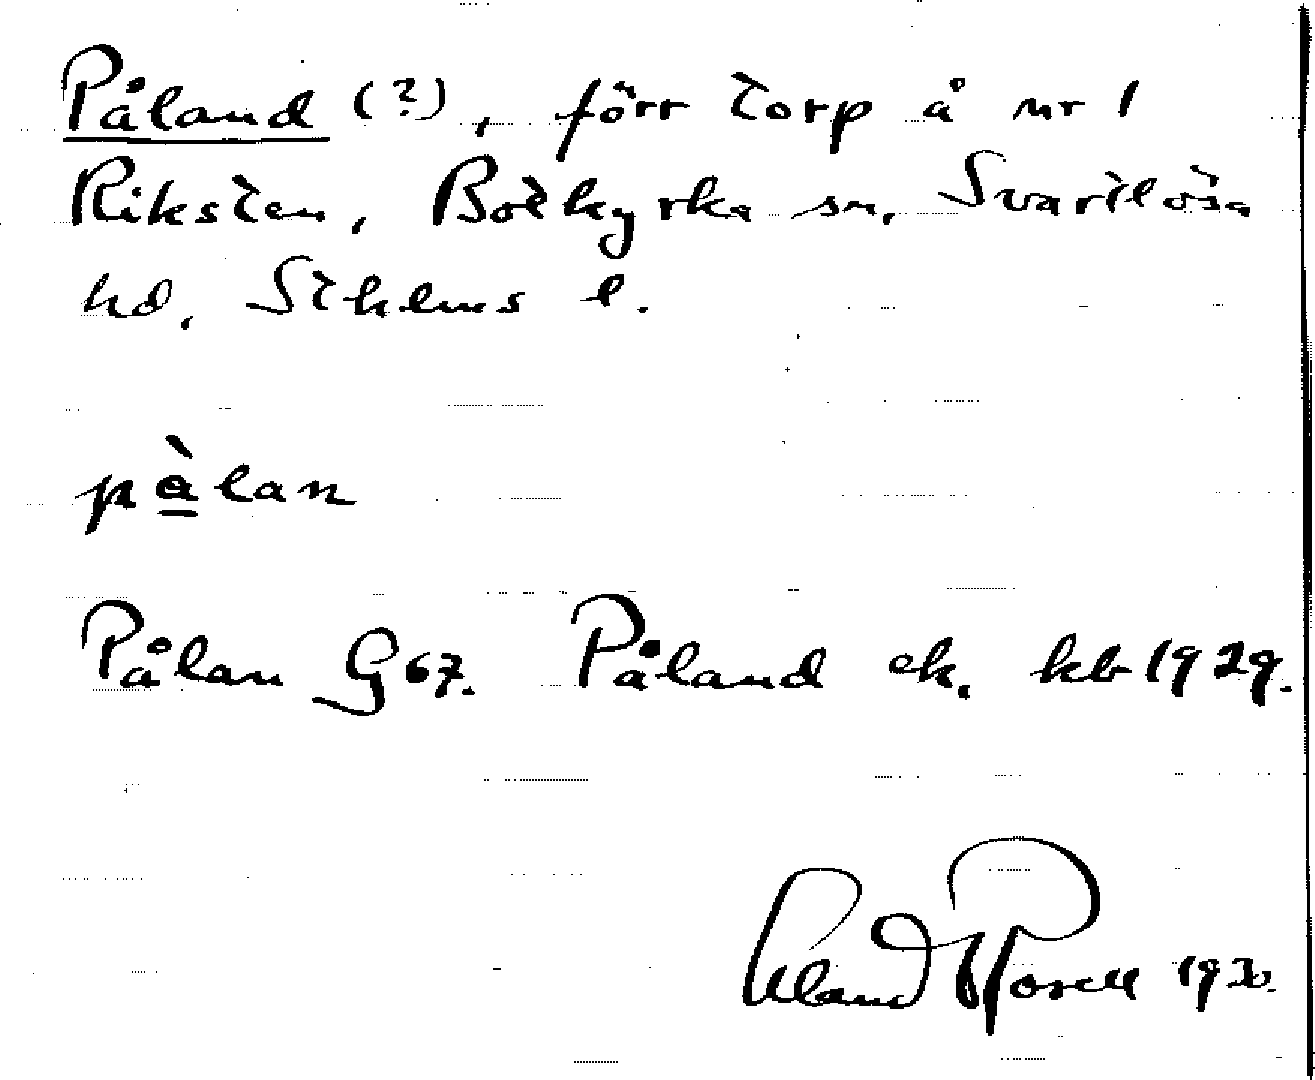 Påland (?), förr torp å nr 1
Riksten, Botkyrka sn, Svartlösa
hd, Sthlms l.
pàlan
Pålan G 67. Påland ek. kb 1929.
Erland Rosell